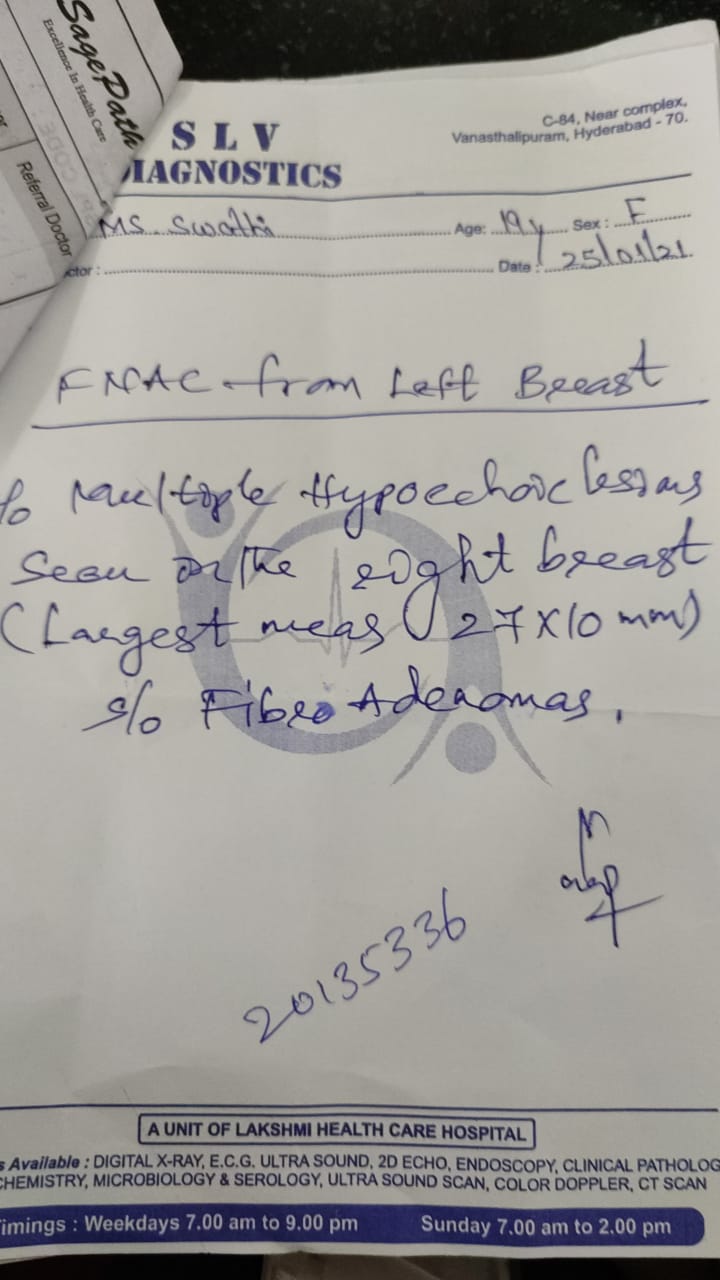 SagePath
Excellence In Health Care
Referral Doctor
SLV
DIAGNOSTICS
C-84, Near complex,
Vanasthalipuram, Hyderabad - 70.
MS. Swathi Age: 19y Sex: F
ctor: Date: 25/01/21
FNAC from Left Breast
Multiple Hypoechoic lesions
Seen in the right breast
(Largest meas 27x10 mm)
s/o Fibro Adenomas.
20135336
A UNIT OF LAKSHMI HEALTH CARE HOSPITAL
s Available : DIGITAL X-RAY, E.C.G. ULTRA SOUND, 2D ECHO, ENDOSCOPY, CLINICAL PATHOLOG
CHEMISTRY, MICROBIOLOGY & SEROLOGY, ULTRA SOUND SCAN, COLOR DOPPLER, CT SCAN
imings : Weekdays 7.00 am to 9.00 pm Sunday 7.00 am to 2.00 pm